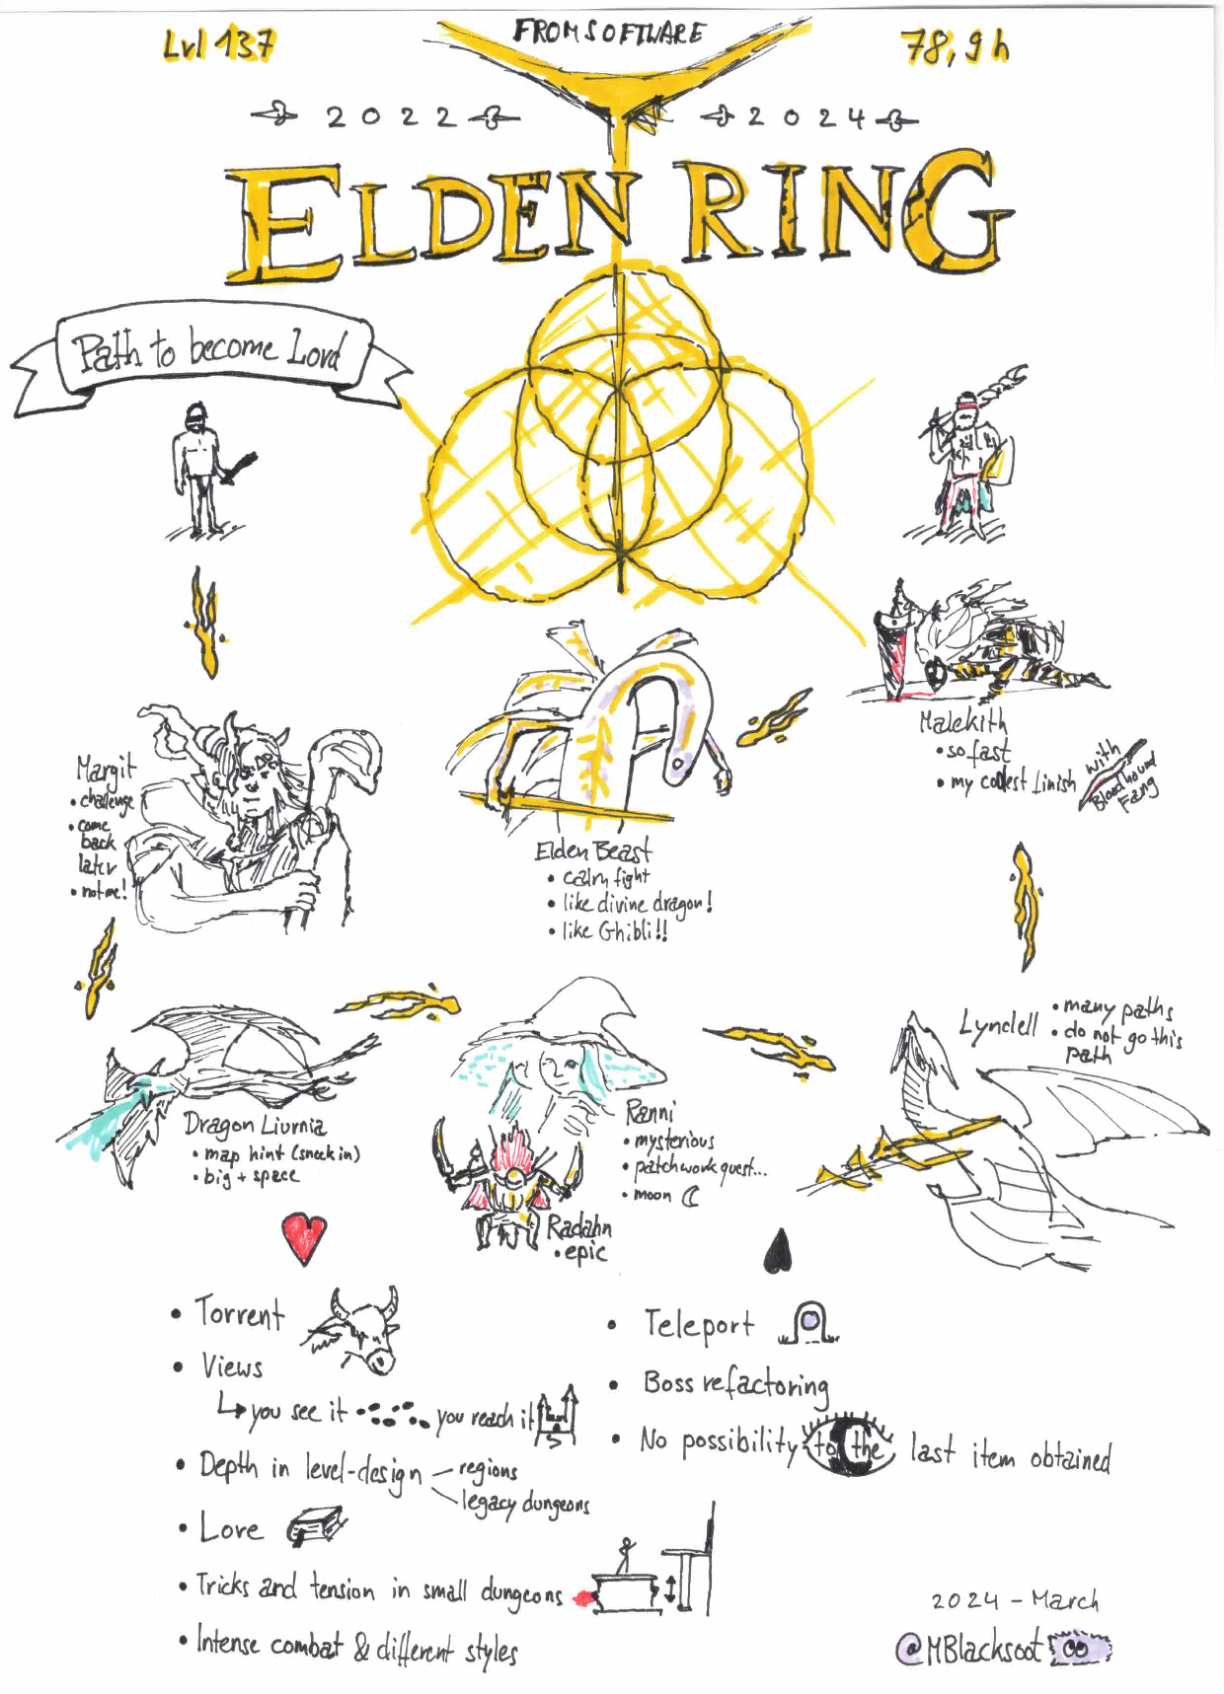 Lvl 137
FROMSOFTWARE
78,9h
2022
2024
ELDEN RING
Path to become Lord
Margit
• challenge
• come
back
later
• not me!
Elden Beast
• calm fight
• like divine dragon!
• like Ghibli!!
Malekith
• so fast
• my coolest finish
with
Bloodhound
Fang
Dragon Liurnia
• map hint (sneek in)
• big + space
Ranni
• mysterious
• patchwork quest...
• moon
Radahn
• epic
Lyndell
• many paths
• do not go this
path
• Torrent
• Views
↳ you see it
you reach it
• Depth in level-design
regions
legacy dungeons
• Lore
• Tricks and tension in small dungeons
• Intense combat & different styles
• Teleport
• Boss refactoring
• No possibility to the last item obtained
2024 - March
@MBlacksoot